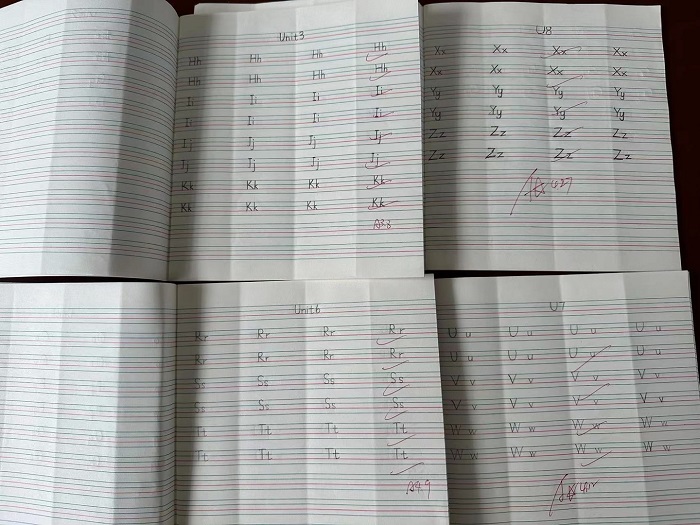 Unit3
Hh Hh Hh Hh
Hh Hh Hh Hh
Ii Ii Ii Ii
Ii Ii Ii Ii
Jj Jj Jj Jj
Jj Jj Jj Jj
Kk Kk Kk Kk
Kk Kk Kk Kk
A3.8
U8
Xx Xx Xx Xx
Xx Xx Xx Xx
Yy Yy Yy Yy
Yy Yy Yy Yy
Zz Zz Zz Zz
Zz Zz Zz Zz
Unit6
Rr Rr Rr Rr
Rr Rr Rr Rr
Ss Ss Ss Ss
Ss Ss Ss Ss
Tt Tt Tt Tt
Tt Tt Tt Tt
A4.9
U7
Uu Uu Uu Uu
Uu Uu Uu Uu
Vv Vv Vv Vv
Vv Vv Vv Vv
Ww Ww Ww Ww
Ww Ww Ww Ww